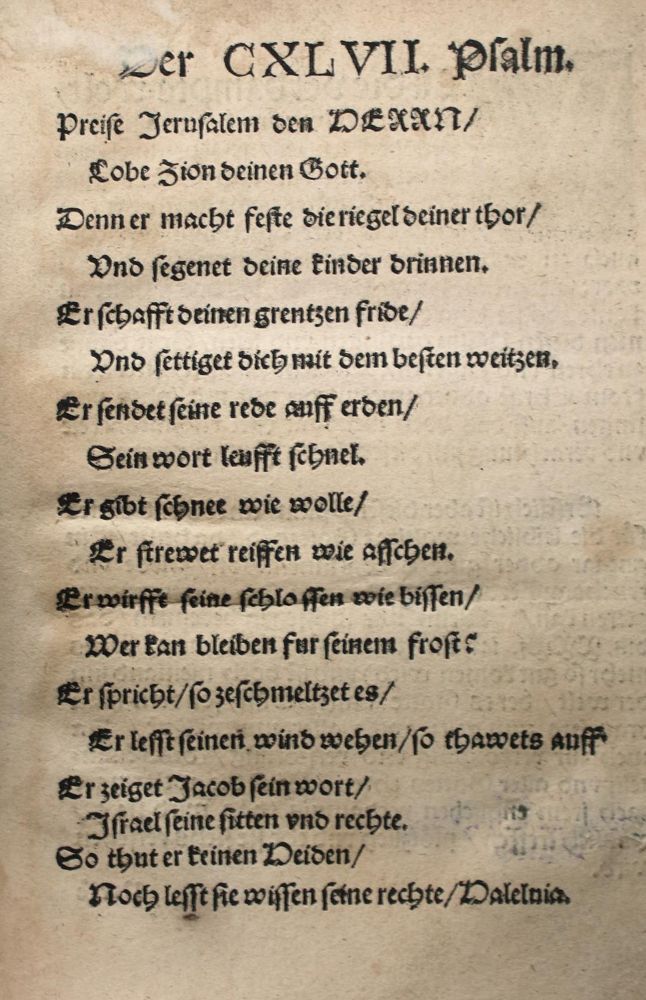 Der CXLVII. Psalm.
Preise Jerusalem den HERRN/
Lobe Zion deinen Gott.
Denn er macht feste die riegel deiner thor/
Vnd segenet deine kinder drinnen.
Er schafft deinen grentzen fride/
Vnd settiget dich mit dem besten weitzen.
Er sendet seine rede auff erden/
Sein wort leufft schnel.
Er gibt schnee wie wolle/
Er strewet reiffen wie asschen.
Er wirfft seine schlossen wie bissen/
Wer kan bleiben fur seinem frost?
Er spricht/so zeschmeltzet es/
Er lesst seinen wind wehen/so thawets auff
Er zeiget Jacob sein wort/
Israel seine sitten vnd rechte.
So thut er keinen Heiden/
Noch lesst sie wissen seine rechte/Haleluia.